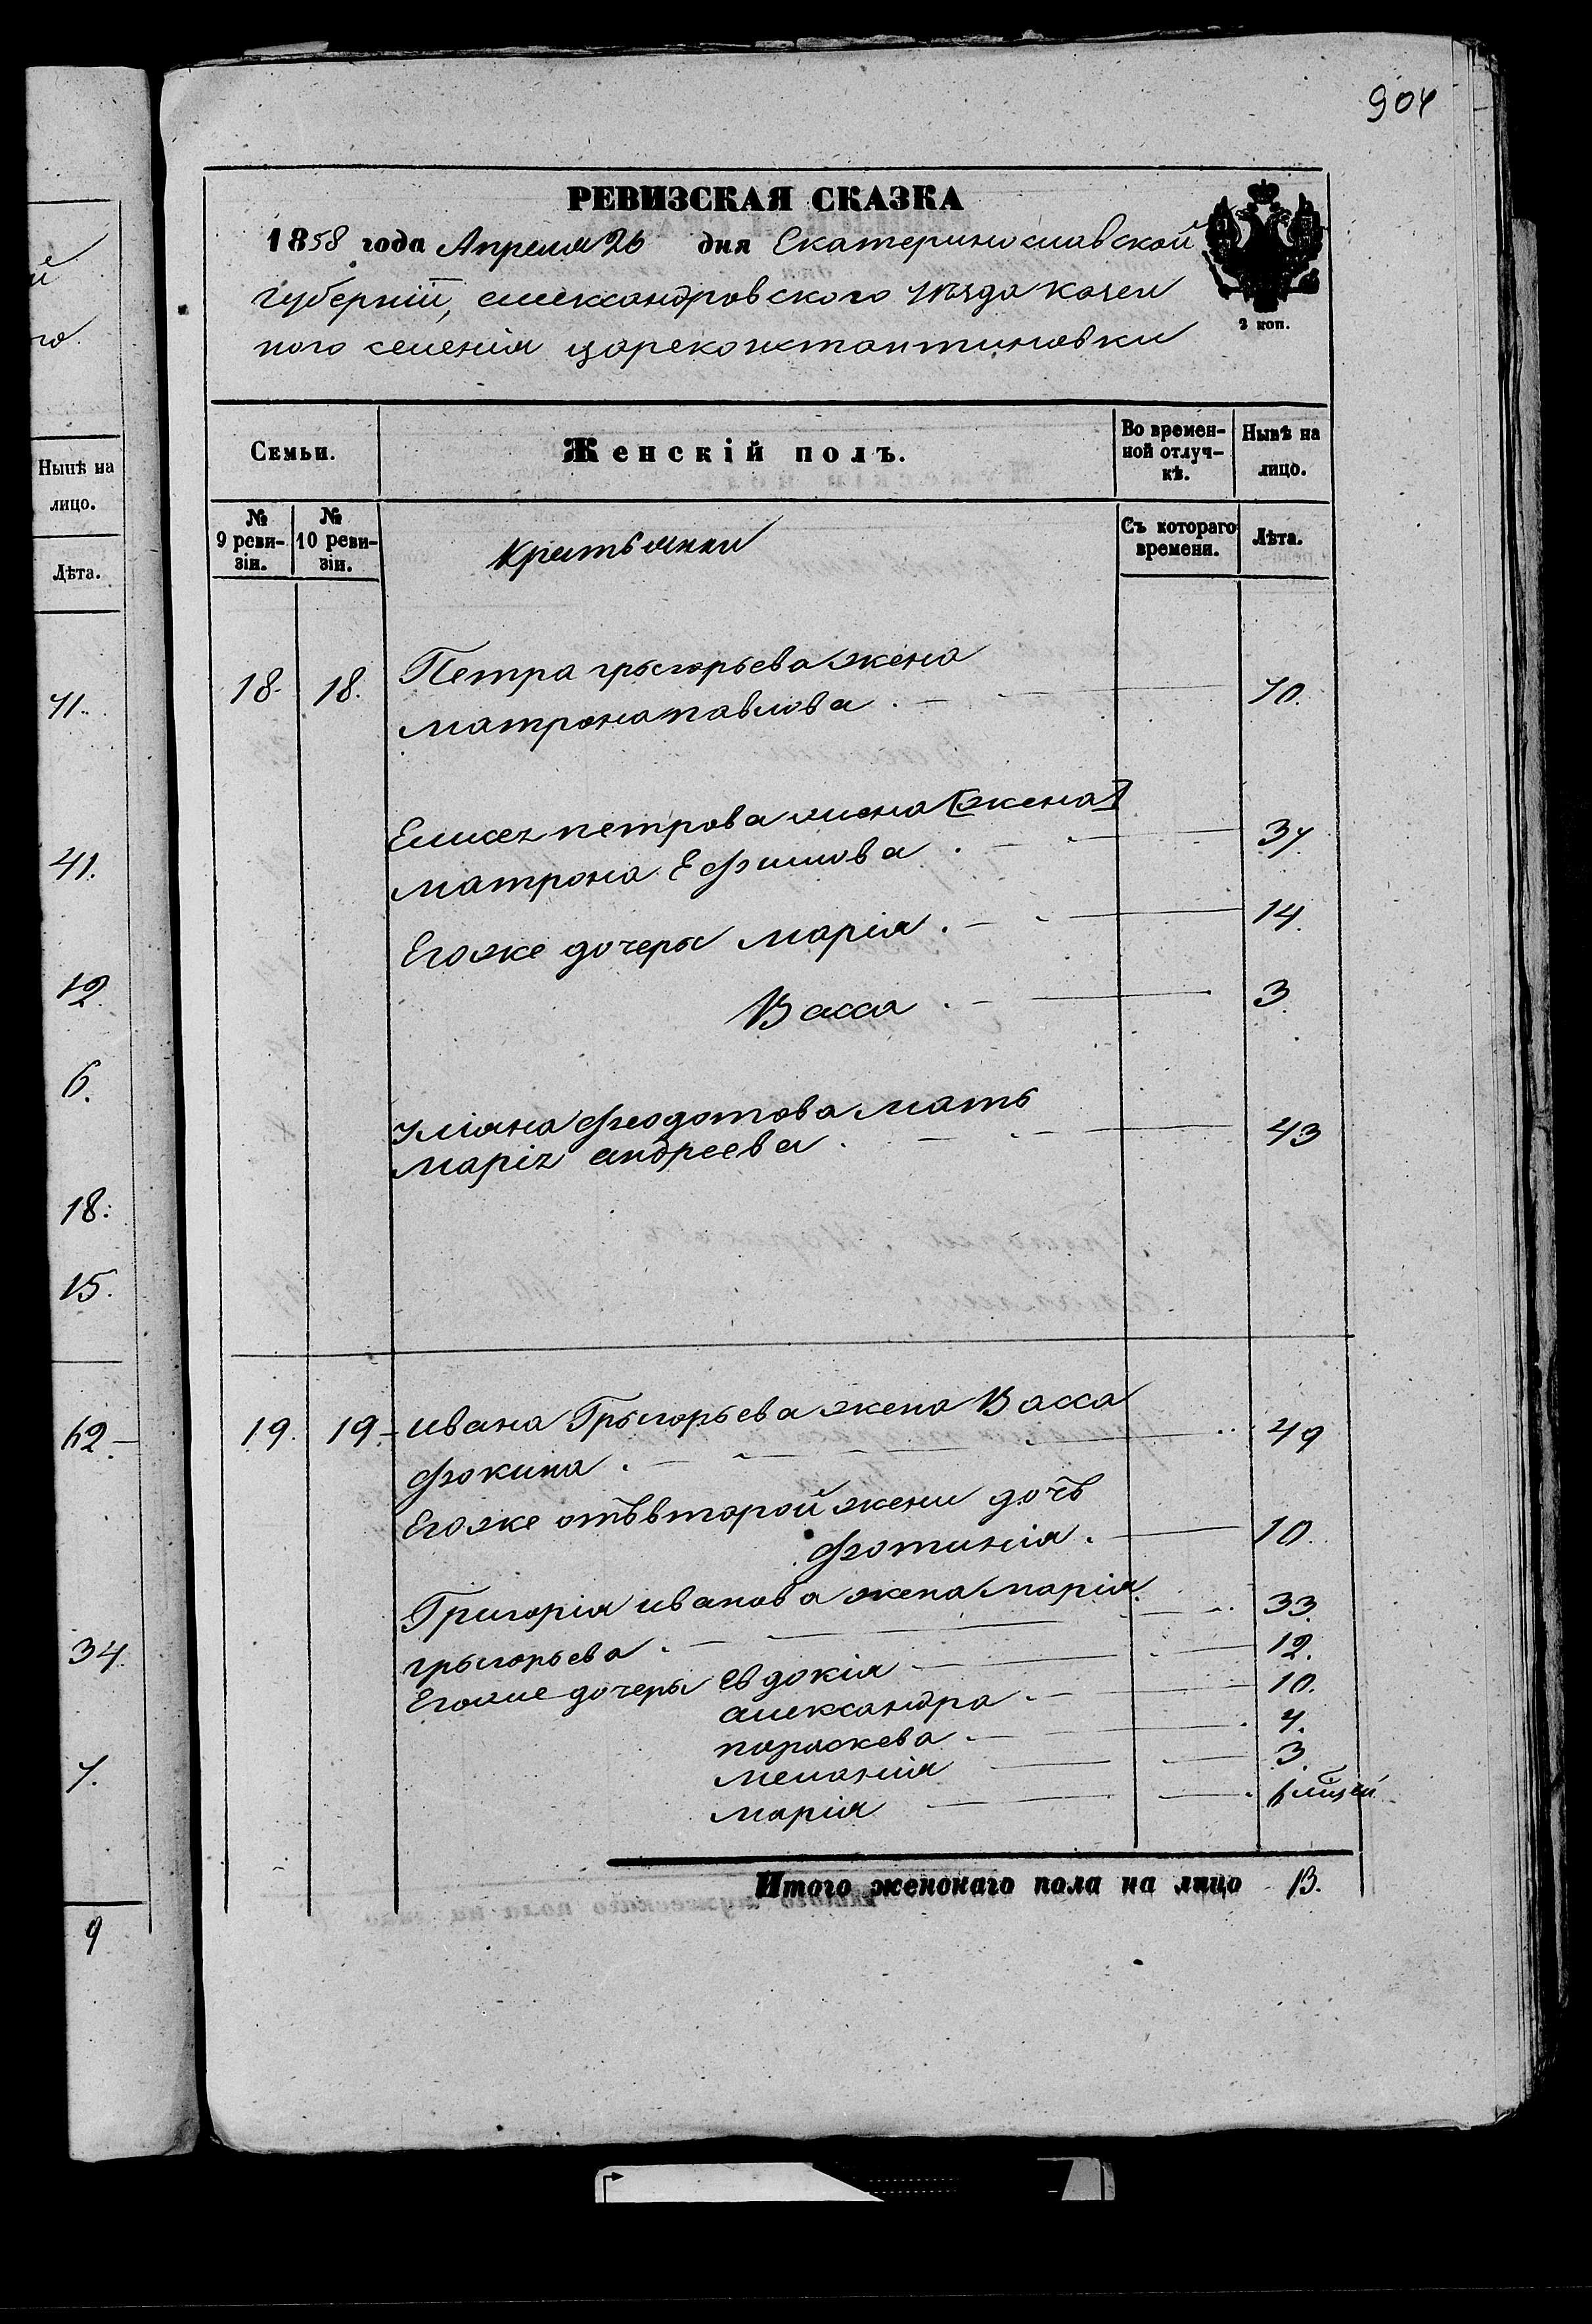 904
РЕВИЗСКАЯ СКАЗКА
1858 года Апреля 26 дня Екатеринославской
губерніи, александровского уѣзда казен
ного селенія цареконстантиновки
2 коп.
Семьи.
Женскій полъ.
Во времен-
ной отлуч-
кѣ.
Нынѣ на
лицо.
№
9 реви-
зіи.
№
10 реви-
зіи.
Крестьянки
Съ котораго
времени.
Лѣта.
18. 18. Петра грыгорьева жена
матрона павлова 70.
Елисея петрова жена
матрона Ефимова 37.
Егоже дочеры марія 14.
Васса 3.
Уліяна федотова мать
марія андреева 43
19. 19. ивана Грыгорьева жена Васса
фокина 49
Егоже отъ второй жени дочь
фотинія 10.
Григорія иванова жена марія 33.
грыгорьева
Егоже дочеры Евдокія 12.
александра 10.
параскева 7.
меланія 3.
марія
Итого женскаго пола на лицо 13.
Нынѣ на
лицо.
Лѣта.
71.
41.
12.
6.
18.
15.
62
34.
7.
9